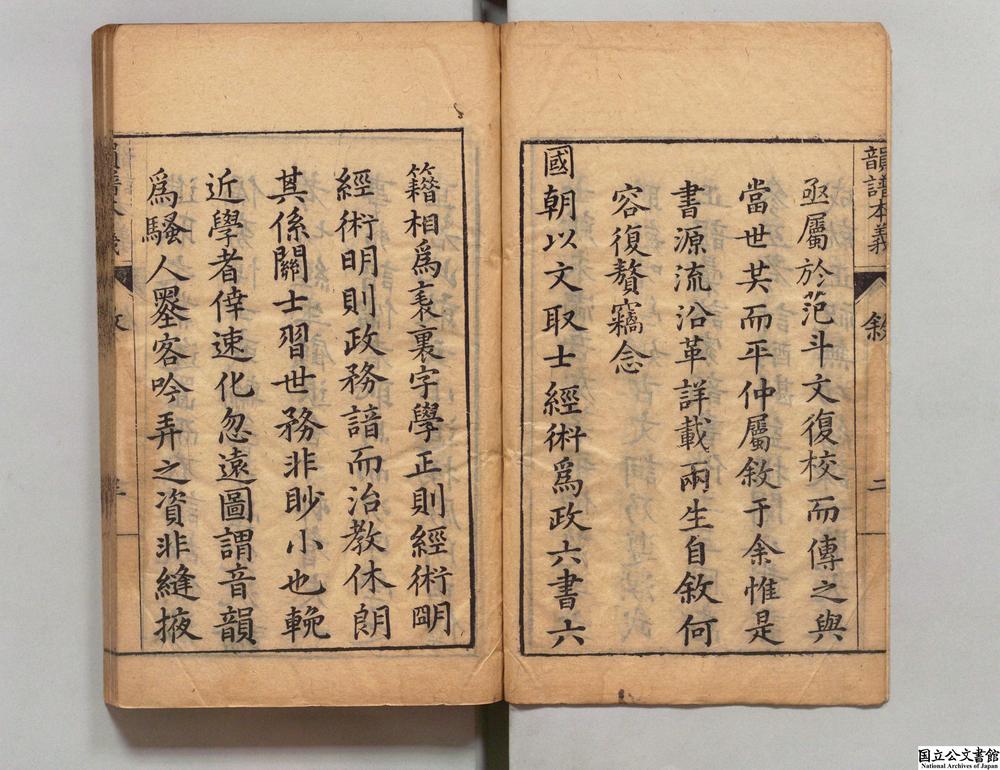 韻譜本義
敘
二
亟屬於范斗文復校而傳之與
當世共而平仲屬敘于余惟是
書源流沿革詳載兩生自敘何
容復贅竊念
國朝以文取士經術爲政六書六
籍相爲表裏字學正則經術明
經術明則政務諳而治教休朗
其係關士習世務非眇小也輓
近學者倖速化忽遠圖謂音韻
爲騷人墨客吟弄之資非縫掖
国立公文書館
National Archives of Japan